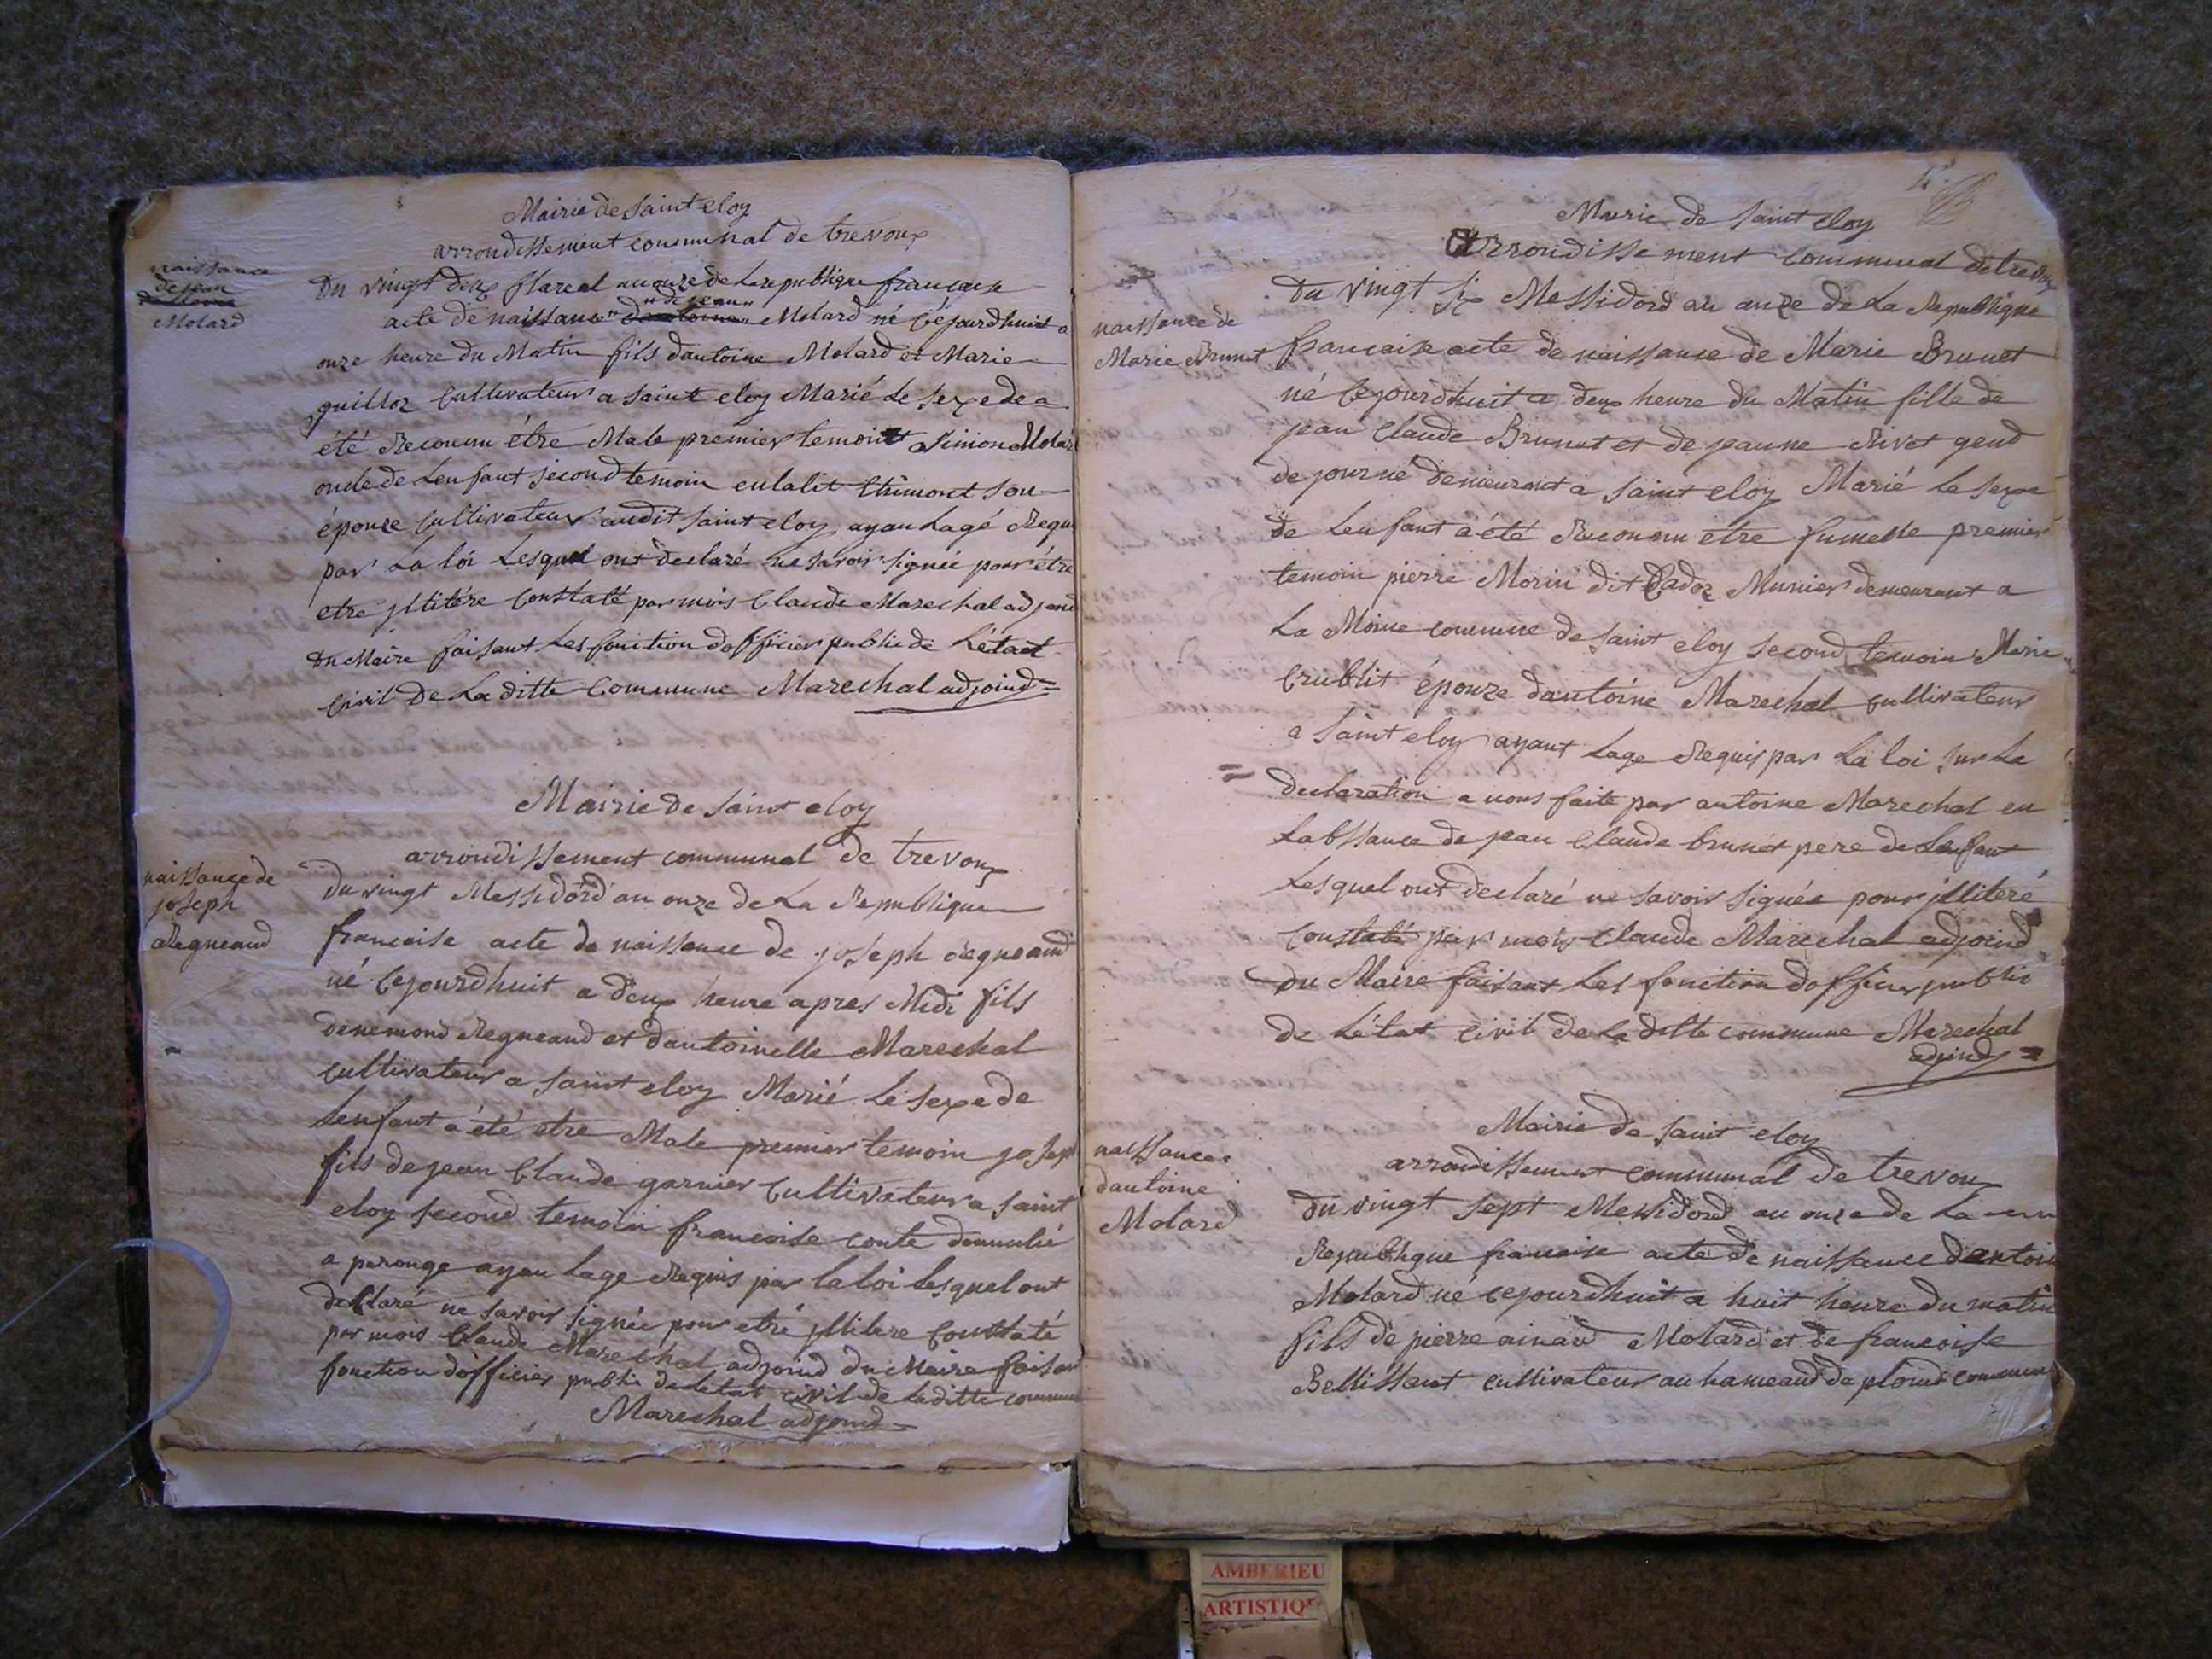 Mairie de saint eloy
arrondissement communal de trevoux
naissance
de jean
Molard
Du vingt deux flareal an onze de La republique francaise
"de jean"
acte de naissance Molard né cejourdhuit a
onze heure du Matin fils dantoine Molard et Marie
guilloz Cultivateur a saint eloy Marié Le sexe de a
été Reconnu étre Male premier temoint Simion Molard
oncle de Lenfant second temoin eulalit thimont sou
épouze cultivateur audit saint eloy ayan Lagé Requi
par La loi Lesquel ont declaré ne savoir signée pour étre
etre jllitére Constaté par mois Claude Marechal adjoind
Du Maire faisant Les fonction dofficier public de Létaet
Civil De La ditte Commune Marechal adjoind
Mairie de saint eloy
arrondissement communal de trevoux
naissance de
joseph
Regneaud
Du vingt Messidord an onze de La Republique
francaise acte de naissance de joseph Regneaud
né Cejourdhuit a deux heure apres Midi fils
denemond Regneaud et dantoinelle Marechal
Cultivateur a saint eloy Marié Le sexe de
Lenfant a été etre Male premier temoin joseph
fils de jean Claude garnier Cultivateur a saint
eloy second temoin francoise conte
a perouge ayan Lage Requis par la loi Lesquel ont
declaré ne savoir signée pour etre jllitere Constaté
par mois Claude Marechal adjoind du Maire faisant
fonction dofficier public de Létat civil de Laditte commune
Marechal adjoind
Mairie de saint eloy
arrondisse ment communal de trevoux
naissance de
Marie Brunet
Du vingt six Messidord an onze de La Republique
francaise acte de naissance de Marie Brunet
né Cejourdhuit a deux heure du Matin fille de
jean Claude Brunet et de jeanne Rivet gend
de journé demeurant a saint eloy Marié le sexe
de Lenfant a été Reconnu etre fumelle premier
temoin pierre Morin dit Cadoz Munier demeurant a
La Moine commune de saint eloy second temoin Marie
Crublit épouze dantoine Marechal cultivateur
a saint eloy ayant Lage Requis par La loi sur La
declaration a nous faite par antoine Marechal en
Labssance de jean Claude brunet pere de Lenfant
Lesquel ont declaré ne savoir signée pour jlliteré
Constaté par mois Claude Marechal adjoind
Du Maire faisant Les fonction dofficier public
de Létat civil de La ditte commune Marechal
adjoind
Mairie de saint eloy
arrondissement communal de trevoux
naissance
dantoine
Molard
Du vingt sept Messidord an onze de La
Republique francaise acte de naissance dantoine
Molard né cejourdhuit a huit heure du matin
fils de pierre ainard Molard et de francoise
Bellissant cultivateur au hameaud de commune
AMBERIEU
ARTISTIQ